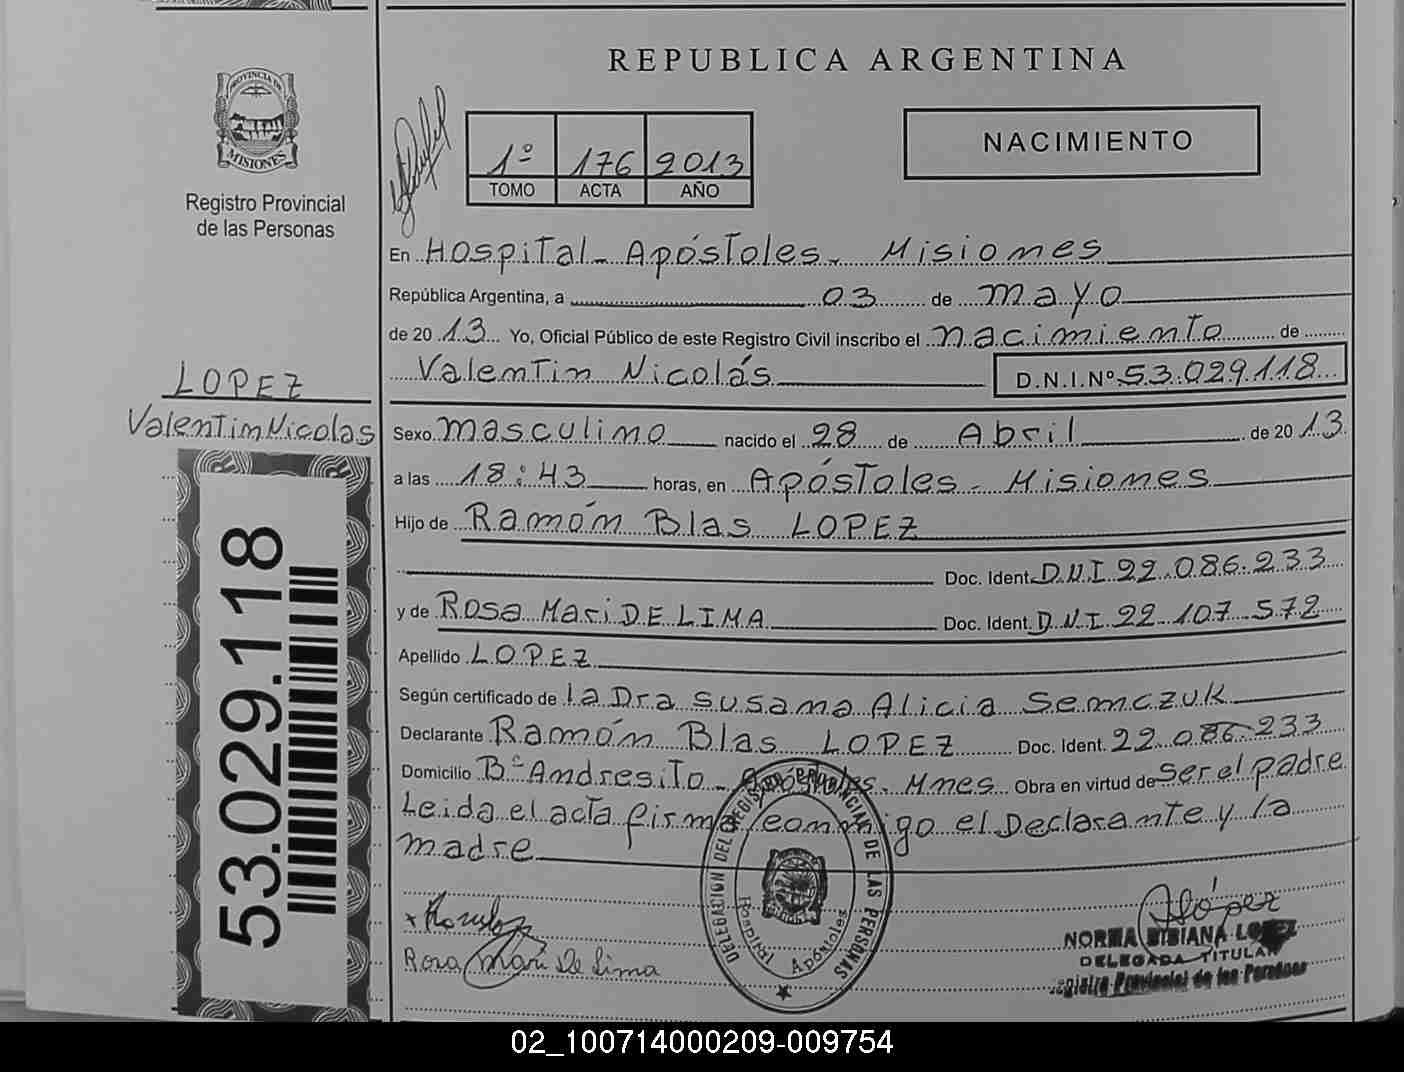 REPUBLICA ARGENTINA
PROVINCIA DE
MISIONES
Registro Provincial
de las Personas
1º 176 2013
TOMO ACTA AÑO
NACIMIENTO
En Hospital - Apóstoles - Misiones
República Argentina, a 03 de mayo
de 2013 Yo, Oficial Público de este Registro Civil inscribo el nacimiento de
Valentin Nicolás D.N.I.Nº 53.029.118
LOPEZ
Valentin Nicolas
Sexo masculino nacido el 28 de Abril de 2013
a las 18:43 horas, en Apóstoles - Misiones
Hijo de Ramón Blas LOPEZ
Doc. Ident. DNI 22.086.233
y de Rosa Mari DE LIMA Doc. Ident. DNI 22.107.572
Apellido LOPEZ
Según certificado de la Dra Susana Alicia Semczuk
Declarante Ramón Blas LOPEZ Doc. Ident. 22.086.233
Domicilio Bº Andresito - Apóstoles - Mnes Obra en virtud de ser el padre
Leida el acta firma conmigo el Declarante y la
madre
53.029.118
DELEGACION DEL REGISTRO PROVINCIAL DE LAS PERSONAS
Hospital Apóstoles
Rosa Mari De Lima
NORMA BIBIANA LOPEZ
DELEGADA TITULAR
Registro Provincial de las Personas
02_100714000209-009754